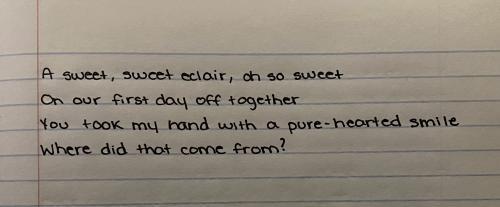 A sweet, sweet eclair, oh so sweet
On our first day off together
You took my hand with a pure-hearted smile
Where did that come from?